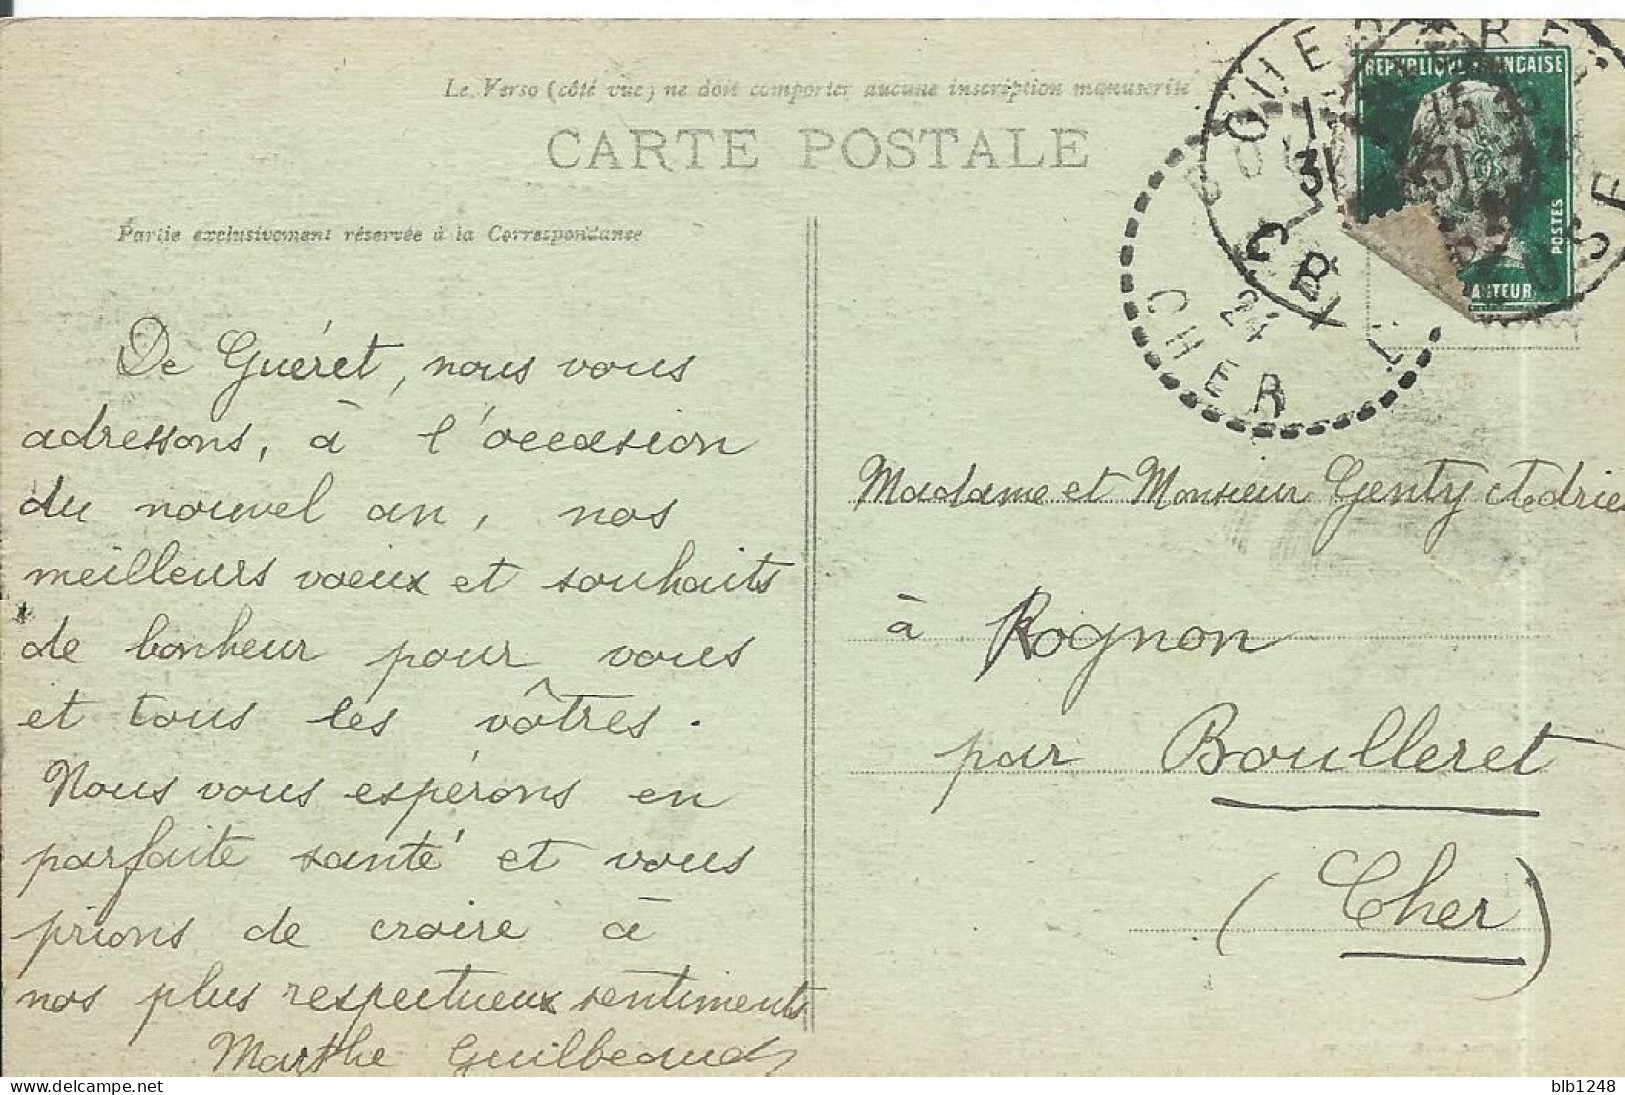 Le Verso (côté vue) ne doit comporter aucune inscription manuscrite
CARTE POSTALE
Partie exclusivement réservée à la Correspondance
De Guéret, nous vous
adressons, à l'occasion
du nouvel an, nos
meilleurs voeux et souhaits
de bonheur pour vous
et tous les vôtres.
Nous vous espérons en
parfaite santé et vous
prions de croire à
nos plus respectueux sentiments
Marthe Guilbeaud
REPUBLIQUE FRANCAISE
POSTES
31
24
CHER
Madame et Monsieur Genty
à Rognon
par Boulleret
(Cher)
blb1248